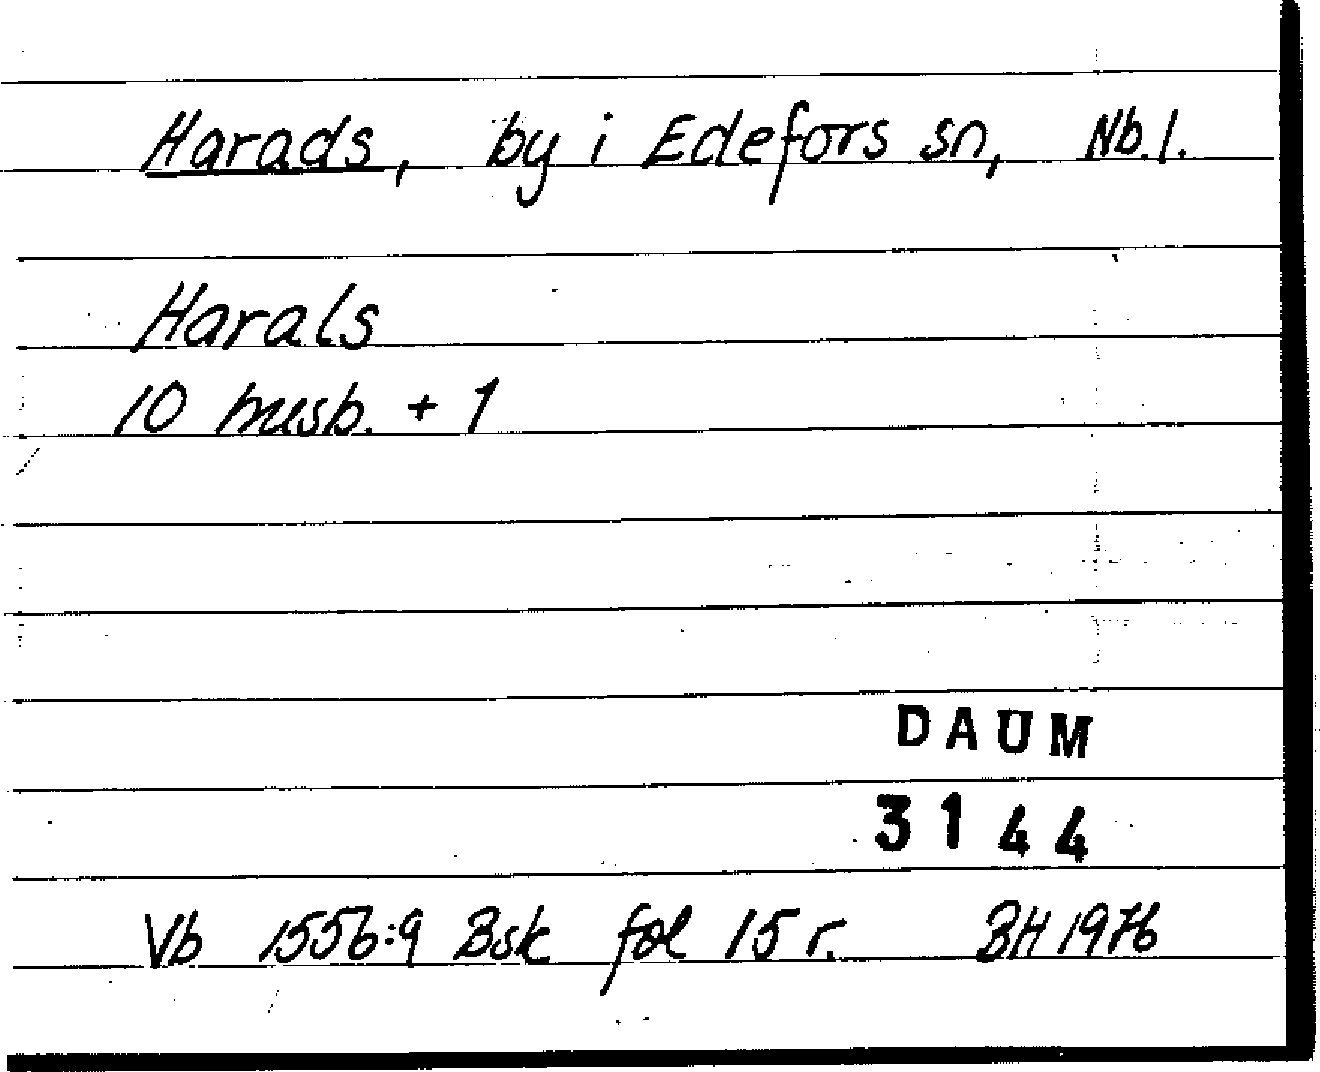 Harads, by i Edefors sn, Nb.l.
Harals
10 husb. + 1
DAUM
3144
Vb 1556:9 Bsk fol 15 r. BH 1976